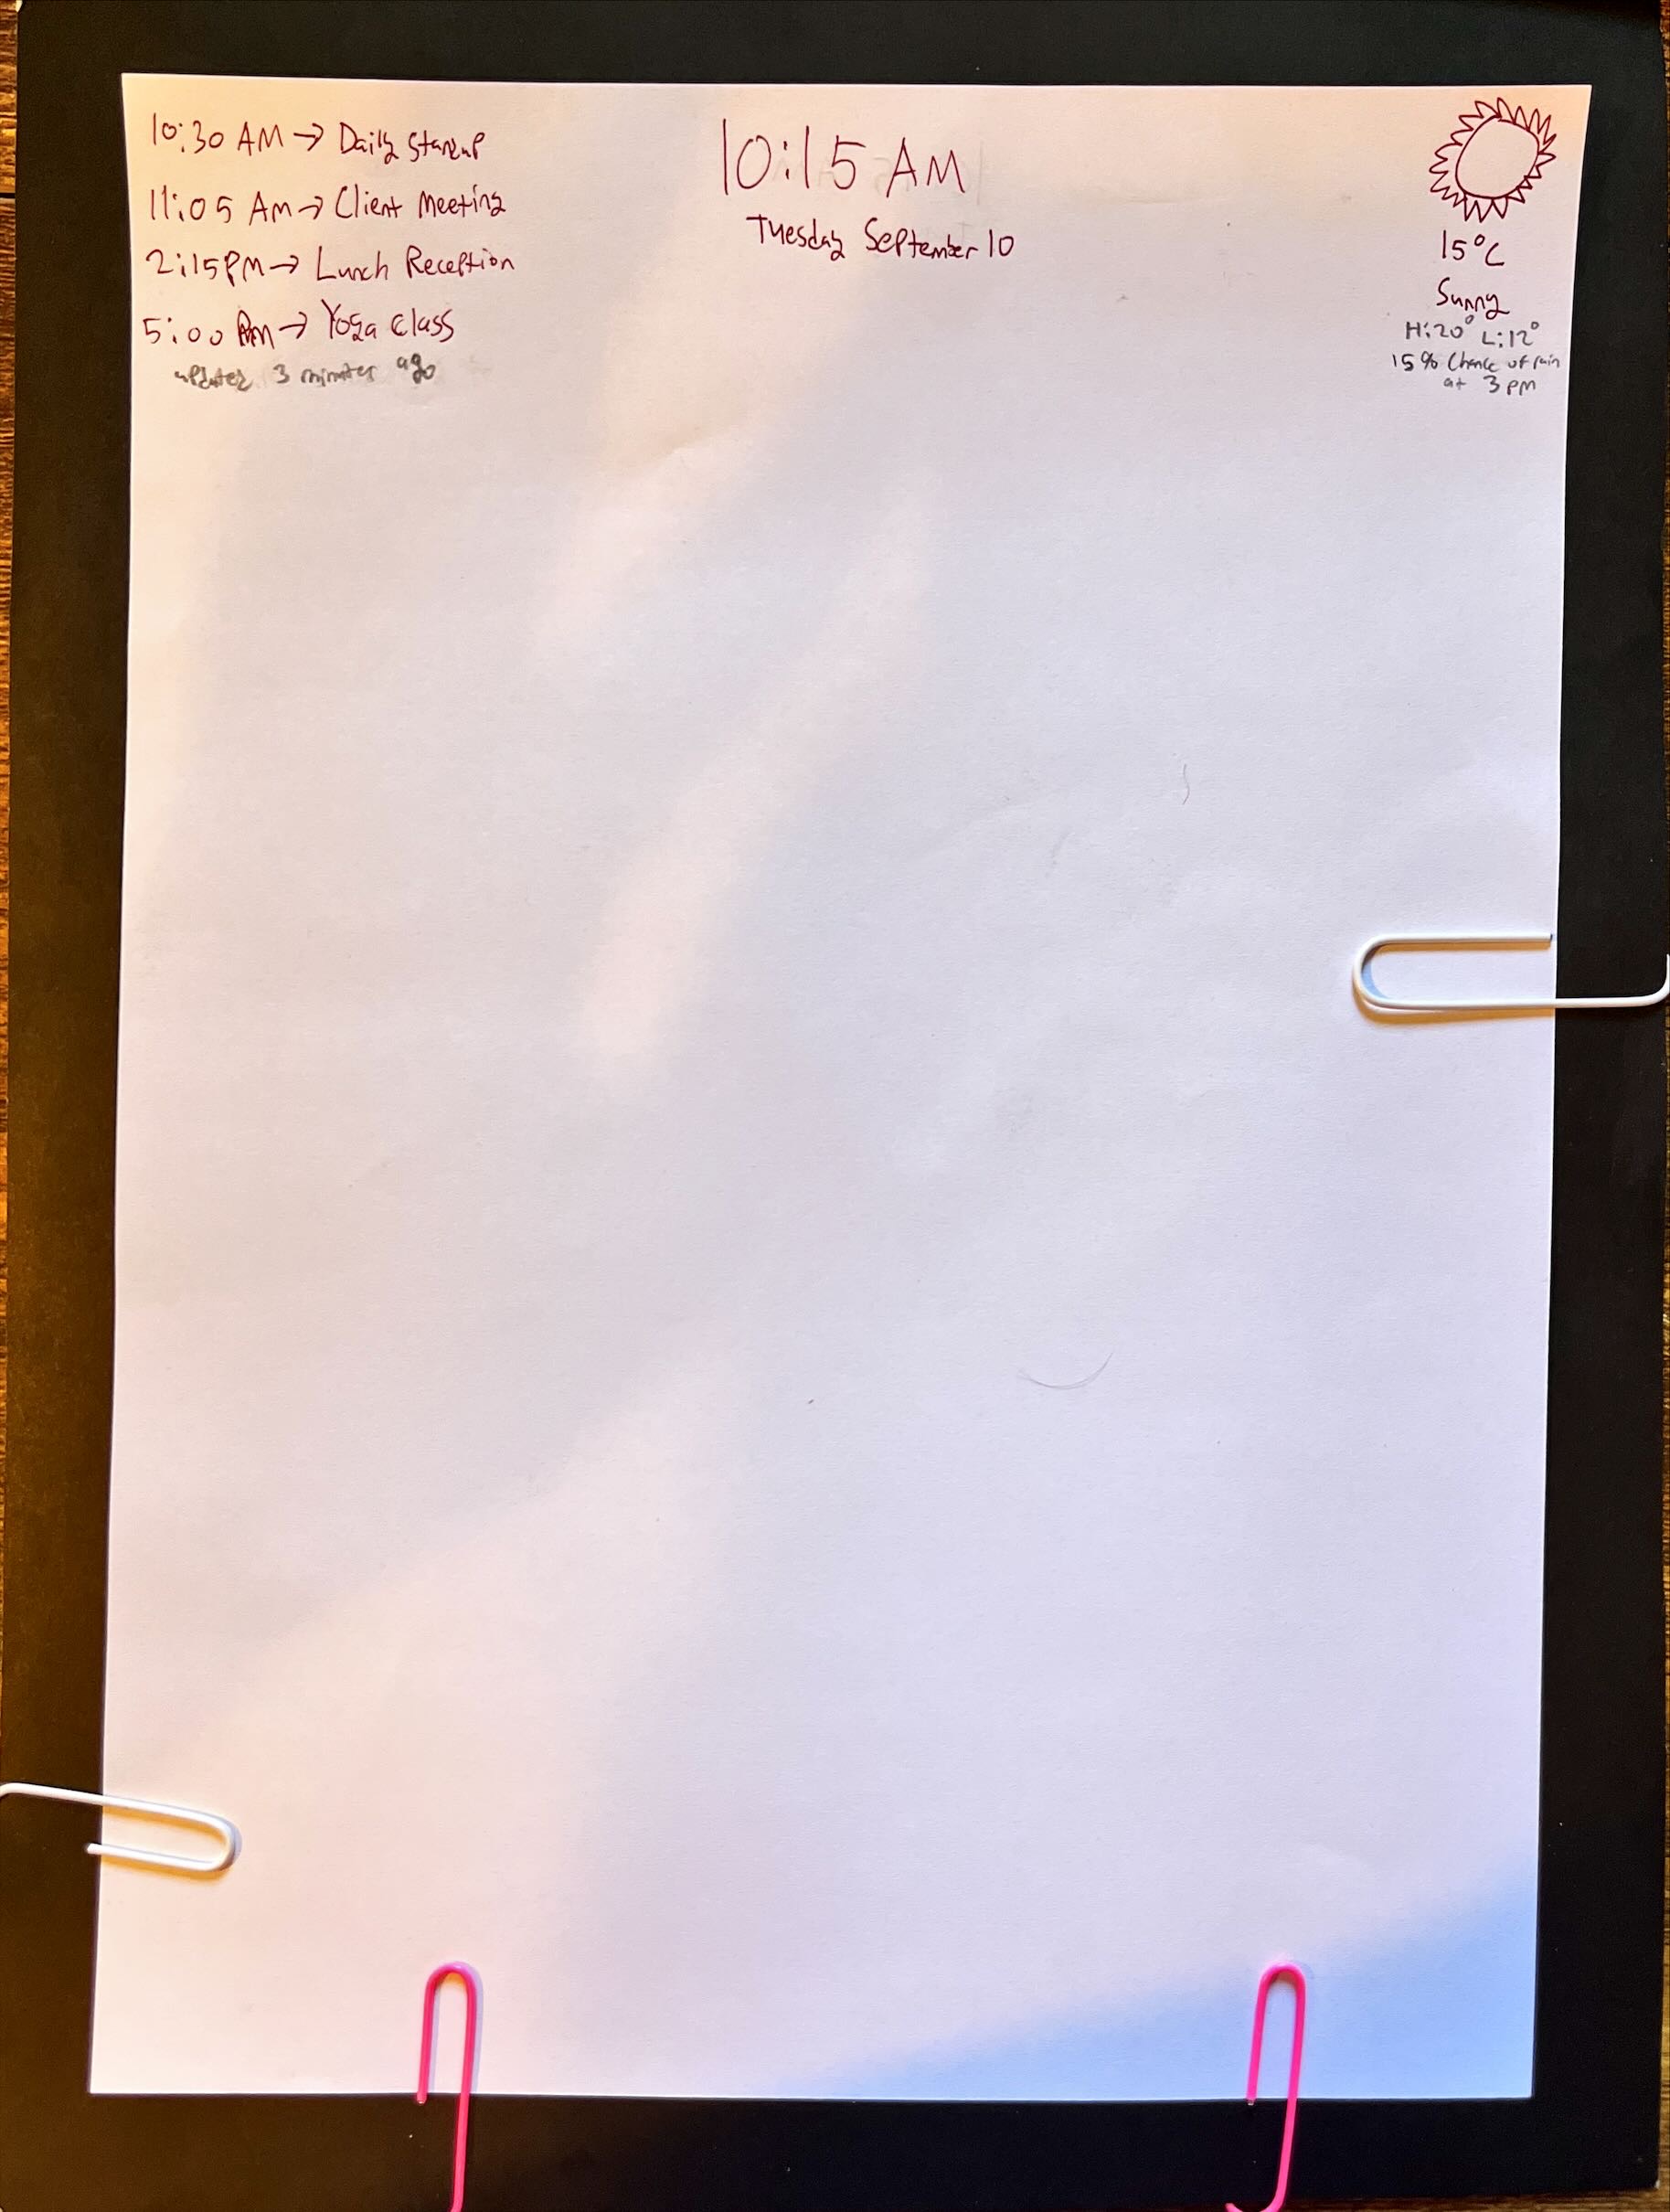 10:30 AM → Daily Standup
11:05 AM → Client Meeting
2:15PM → Lunch Reception
5:00 PM → Yoga Class
updated 3 minutes ago
10:15 AM
Tuesday September 10
15°C
Sunny
H:20° L:12°
15% Chance of rain
at 3 pm